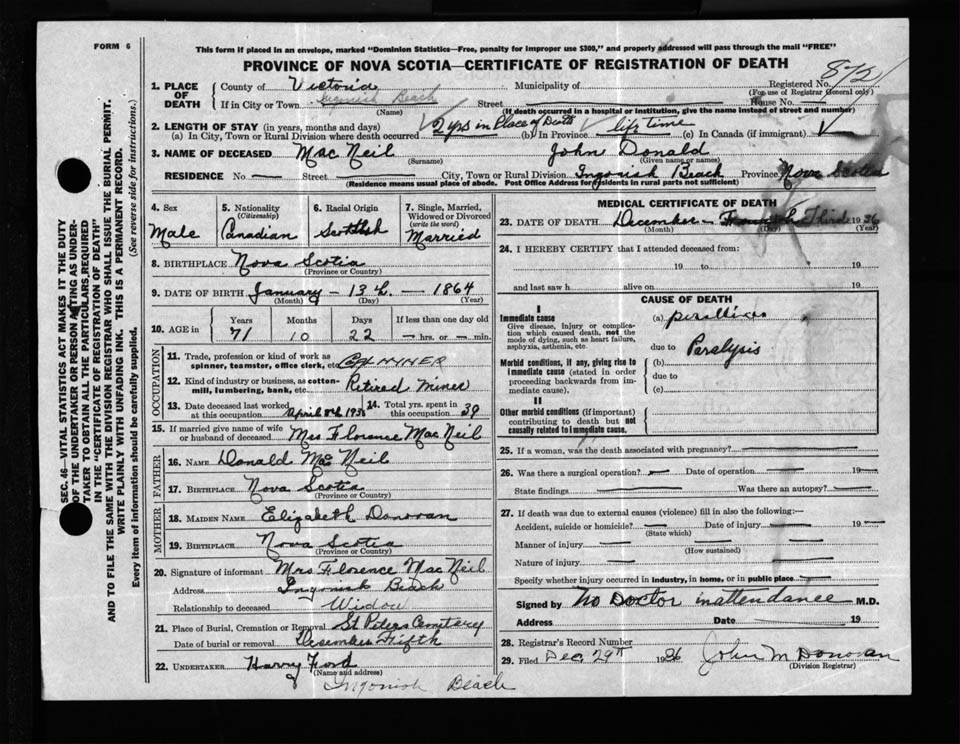 FORM 6
This form if placed in an envelope, marked "Dominion Statistics—Free, penalty for improper use $300," and properly addressed will pass through the mail "FREE"
PROVINCE OF NOVA SCOTIA—CERTIFICATE OF REGISTRATION OF DEATH
872
1. PLACE OF DEATH
County of Victoria Municipality of Registered No.
(For use of Registrar General only)
If in City or Town Ingonish Beach Street House No. —
(Name) (If death occurred in a hospital or institution, give the name instead of street and number)
2. LENGTH OF STAY (in years, months and days)
(a) In City, Town or Rural Division where death occurred 2 yrs in Place of Death (b) In Province life time (c) In Canada (if immigrant)
3. NAME OF DECEASED Mac Neil John Donald
(Surname) (Given name or names)
RESIDENCE No. — Street — City, Town or Rural Division Ingonish Beach Province Nova Scotia
(Residence means usual place of abode. Post Office Address for residents in rural parts not sufficient)
SEC. 46—VITAL STATISTICS ACT MAKES IT THE DUTY
OF THE UNDERTAKER OR PERSON ACTING AS UNDER-
TAKER TO OBTAIN ALL THE PARTICULARS REQUIRED
IN THE "CERTIFICATE OF REGISTRATION OF DEATH"
AND TO FILE THE SAME WITH THE DIVISION REGISTRAR WHO SHALL ISSUE THE BURIAL PERMIT.
WRITE PLAINLY WITH UNFADING INK. THIS IS A PERMANENT RECORD.
Every item of information should be carefully supplied. (See reverse side for instructions.)
4. Sex
Male
5. Nationality
(Citizenship)
Canadian
6. Racial Origin
Scottish
7. Single, Married,
Widowed or Divorced
(write the word)
Married
8. BIRTHPLACE Nova Scotia
(Province or Country)
9. DATE OF BIRTH January – 13th – 1864
(Month) (Day) (Year)
10. AGE in Years Months Days If less than one day old
71 10 22 — hrs. or — min.
OCCUPATION
11. Trade, profession or kind of work as
spinner, teamster, office clerk, etc.
12. Kind of industry or business, as cotton-
mill, lumbering, bank, etc. Retired Miner
13. Date deceased last worked
at this occupation April
14. Total yrs. spent in
this occupation 39
15. If married give name of wife
or husband of deceased Mrs Florence Mac Neil
FATHER
16. NAME Donald Mc Neil
17. BIRTHPLACE Nova Scotia
(Province or Country)
MOTHER
18. MAIDEN NAME Elizabeth Donovan
19. BIRTHPLACE Nova Scotia
(Province or Country)
20. Signature of informant Mrs Florence Mac Neil
Address Ingonish Beach
Relationship to deceased Widow
21. Place of Burial, Cremation or Removal St Peters Cemetery
Date of burial or removal Desember Fifth
22. UNDERTAKER Harry Ford
(Name and address)
Ingonish Beach
MEDICAL CERTIFICATE OF DEATH
23. DATE OF DEATH December – Third 1936
(Month) (Day) (Year)
24. I HEREBY CERTIFY that I attended deceased from:
19 to 19
and last saw h alive on 19
CAUSE OF DEATH
I
Immediate cause
Give disease, injury or complica-
tion which caused death, not the
mode of dying, such as heart failure,
asphyxia, asthenia, etc.
(a)
due to Paralysis
Morbid conditions, if any, giving rise to
immediate cause (stated in order
proceeding backwards from im-
mediate cause).
(b)
due to
(c)
II
Other morbid conditions (if important)
contributing to death but not
causally related to immediate cause.
25. If a woman, was the death associated with pregnancy?
26. Was there a surgical operation? — Date of operation — 19—
State findings Was there an autopsy?
27. If death was due to external causes (violence) fill in also the following:—
Accident, suicide or homicide? — Date of injury — 19—
(State which)
Manner of injury
(How sustained)
Nature of injury
Specify whether injury occurred in industry, in home, or in public place
Signed by No Doctor in attendance M.D.
Address Date 19
28. Registrar's Record Number
29. Filed Dec 29th 1936 John M Donovan
(Division Registrar)